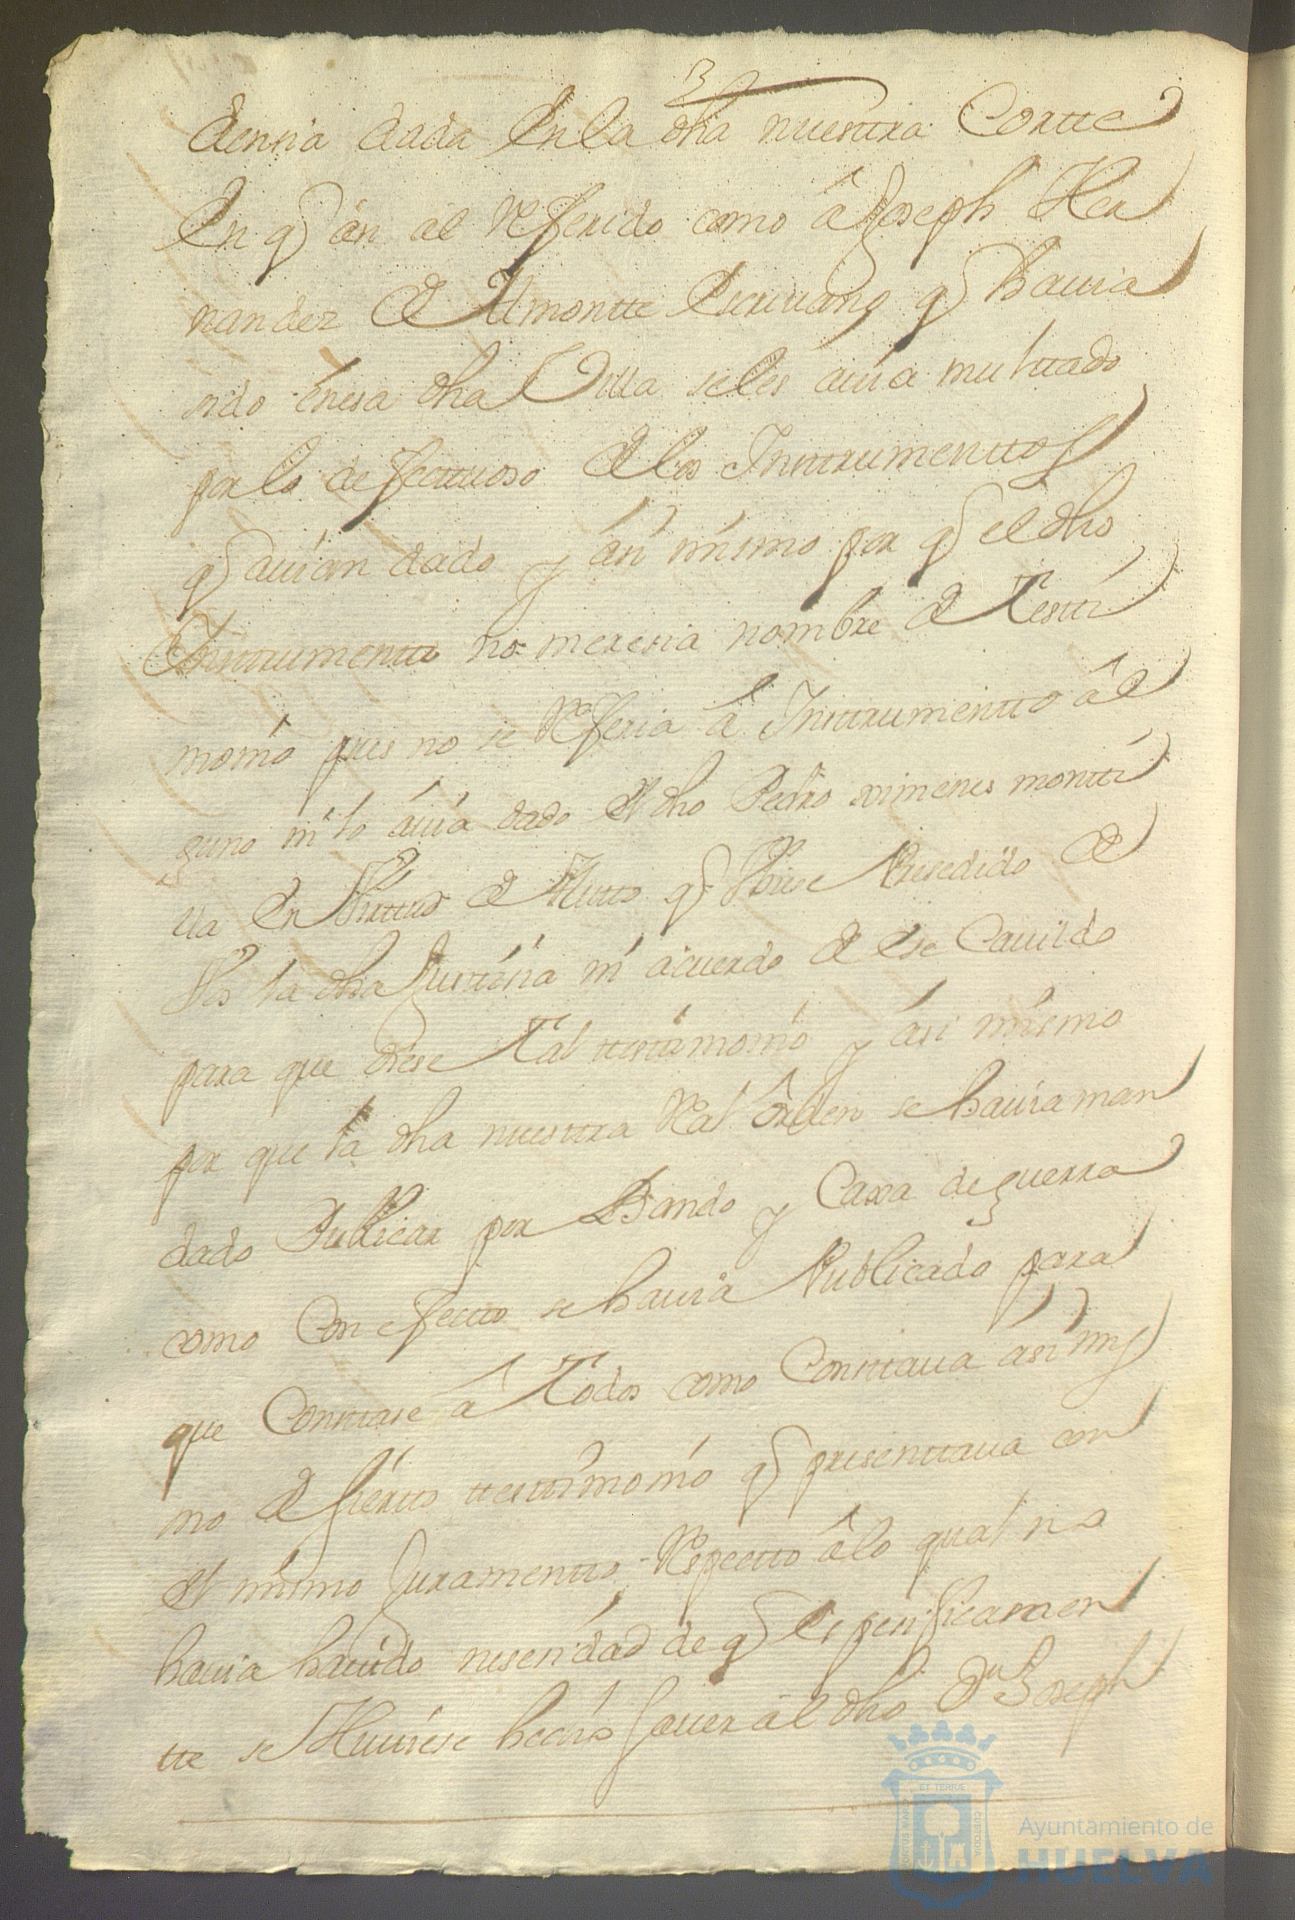 dencia dada En la dha nuestra Cortte
En q asi al Referido como â Joseph Her
nandez de Almontte Escrivano q havia
sido en esa dha Villa se les avia multtado
por lo defecttuoso de los Insttrumenttos
q avian dado y asi mismo por q el dho
Insttrumentto no meresia nombre de Testti
monio pues no se Referia â Insttrumentto âl
guno ni lo avia dado El dho Pedro ximenes montti
lla En Virttud de Autto q Vbiese Presedido de
Vos la dha Justisia ni acuerdo de Ese Cavildo
para que diese Tal testtimonio y asi mismo
por que la dha nuestra Real orden se havia man
dado Publicar por Bando y Caxa de guerra
como Con efectto se havia Publicado para
que Consttase â Todos como Consttava asi mis
mo de siertto testtimonio q presenttava con
El mismo Juramentto, Respectto âlo qual no
havia havido nesesidad de q Espesificamen
tte se Huviese hecho saver al dho Dn Joseph
ET TERRÆ
Ayuntamiento de
HUELVA